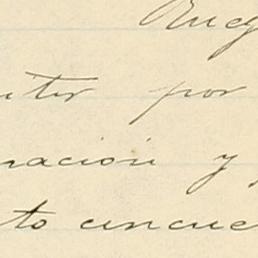 Rueg
por
nacion y
to cincue